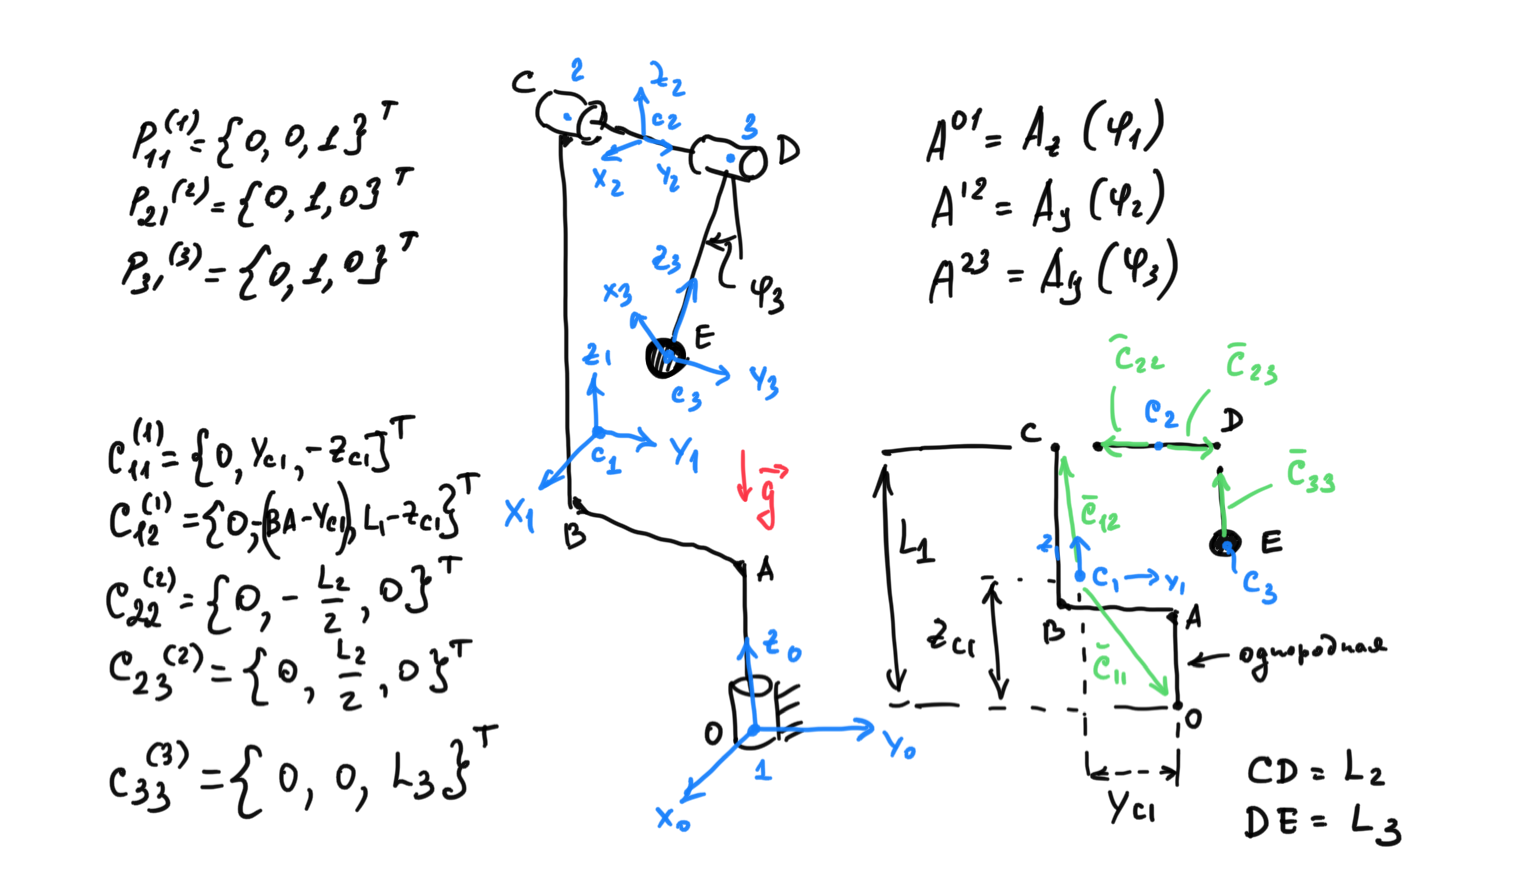 P₁₁⁽¹⁾ = {0, 0, 1}ᵀ
P₂₁⁽²⁾ = {0, 1, 0}ᵀ
P₃₁⁽³⁾ = {0, 1, 0}ᵀ
C₁₁⁽¹⁾ = {0, Yc₁, -Zc₁}ᵀ
C₁₂⁽¹⁾ = {0, -(BA - Yc₁), L₁ - Zc₁}ᵀ
C₂₂⁽²⁾ = {0, - L₂/2, 0}ᵀ
C₂₃⁽²⁾ = {0, L₂/2, 0}ᵀ
C₃₃⁽³⁾ = {0, 0, L₃}ᵀ
C
2
Z₂
C₂
X₂
Y₂
3
D
Z₃
X₃
φ₃
E
Y₃
C₃
Z₁
Y₁
C₁
X₁
B
A
g⃗
Z₀
O
1
Y₀
X₀
A⁰¹ = A_z (φ₁)
A¹² = A_y (φ₂)
A²³ = A_y (φ₃)
C̄₂₂
C̄₂₃
C
C₂
D
C̄₃₃
L₁
C̄₁₂
E
z₁
C₁
Y₁
C₃
Zc₁
B
A
C̄₁₁
однородная
O
Yc₁
CD = L₂
DE = L₃